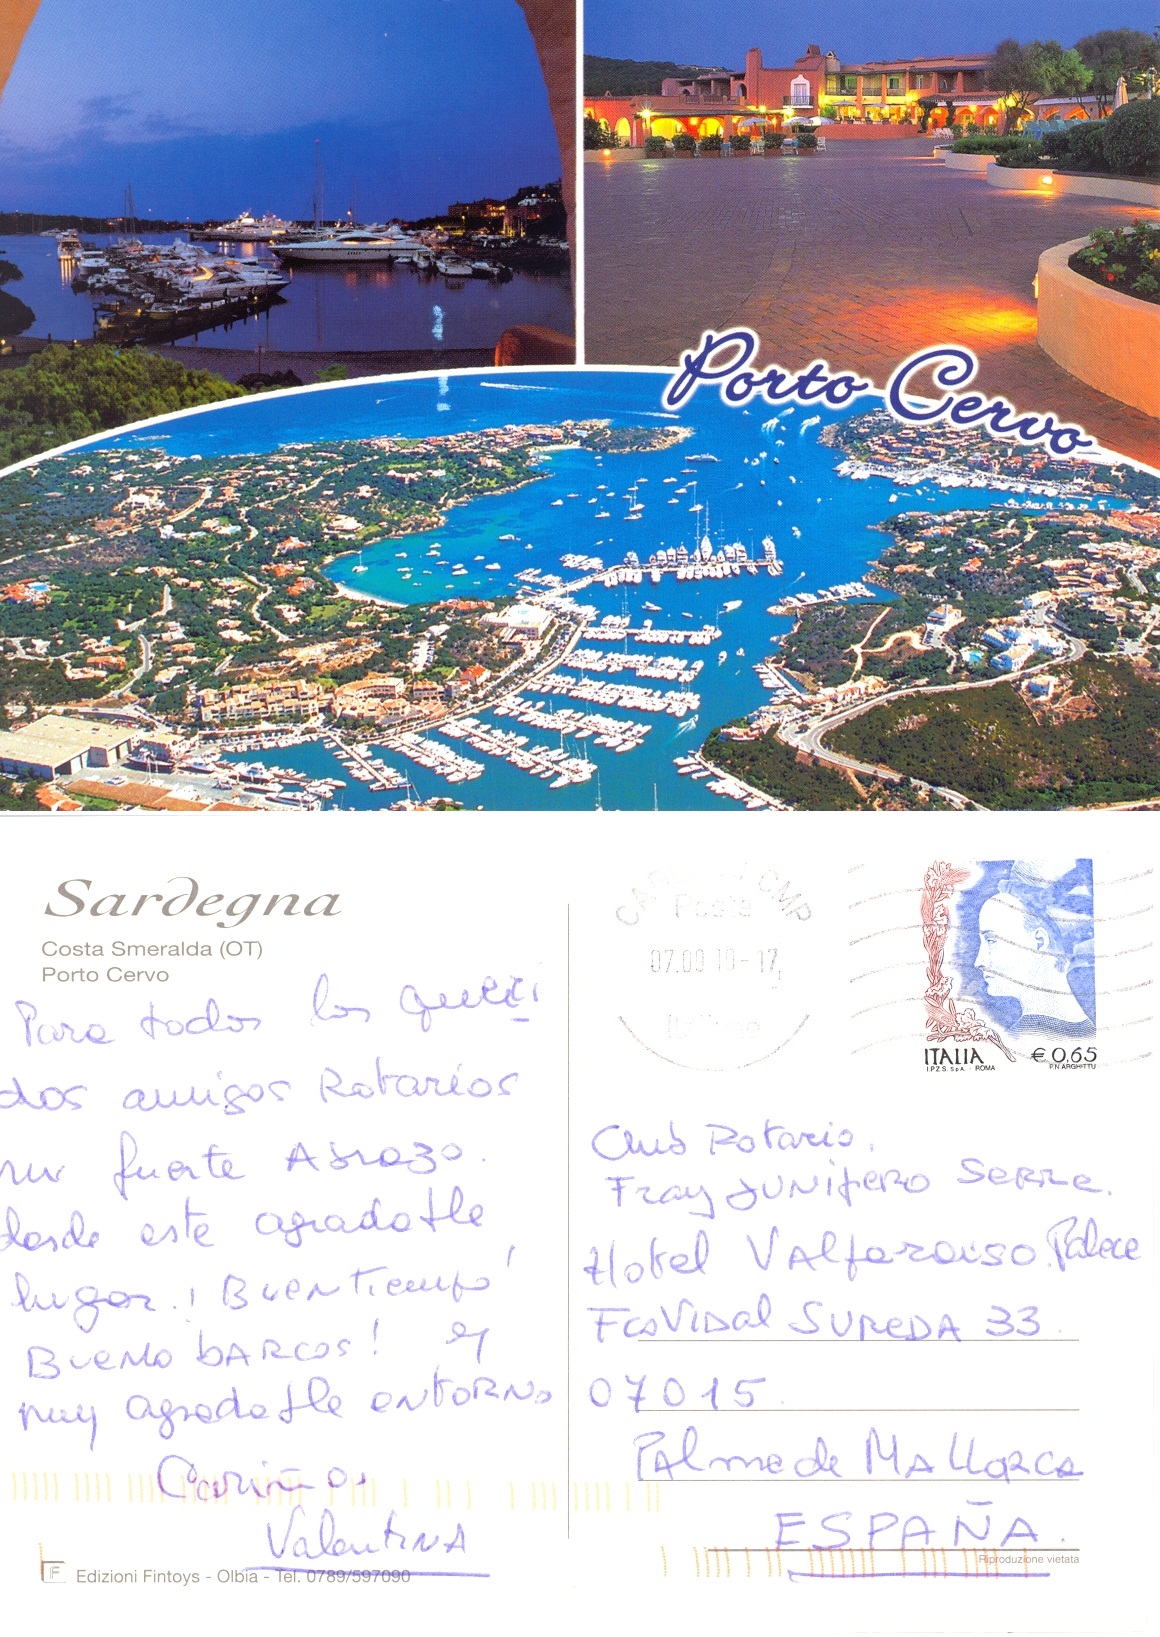 Porto Cervo
Sardegna
Costa Smeralda (OT)
Porto Cervo
Para todos los queri
dos amigos Rotarios
un fuerte Abrazo.
desde este agradable
lugar. ¡ Buen Tiempo!
Bueno barcos! y
muy agradable entorno
Cariños
Valentina
Edizioni Fintoys - Olbia - Tel. 0789/597090
Poste
07.09 10-17
Italiane
ITALIA € 0,65
I.P.Z.S. S.p.A. - ROMA P.N. ARGHITTU
Club Rotario,
Fray Junifero Serra.
Hotel Valparaiso Palace
Fco Vidal Sureda 33
07015
Palma de Mallorca
ESPAÑA.
Riproduzione vietata